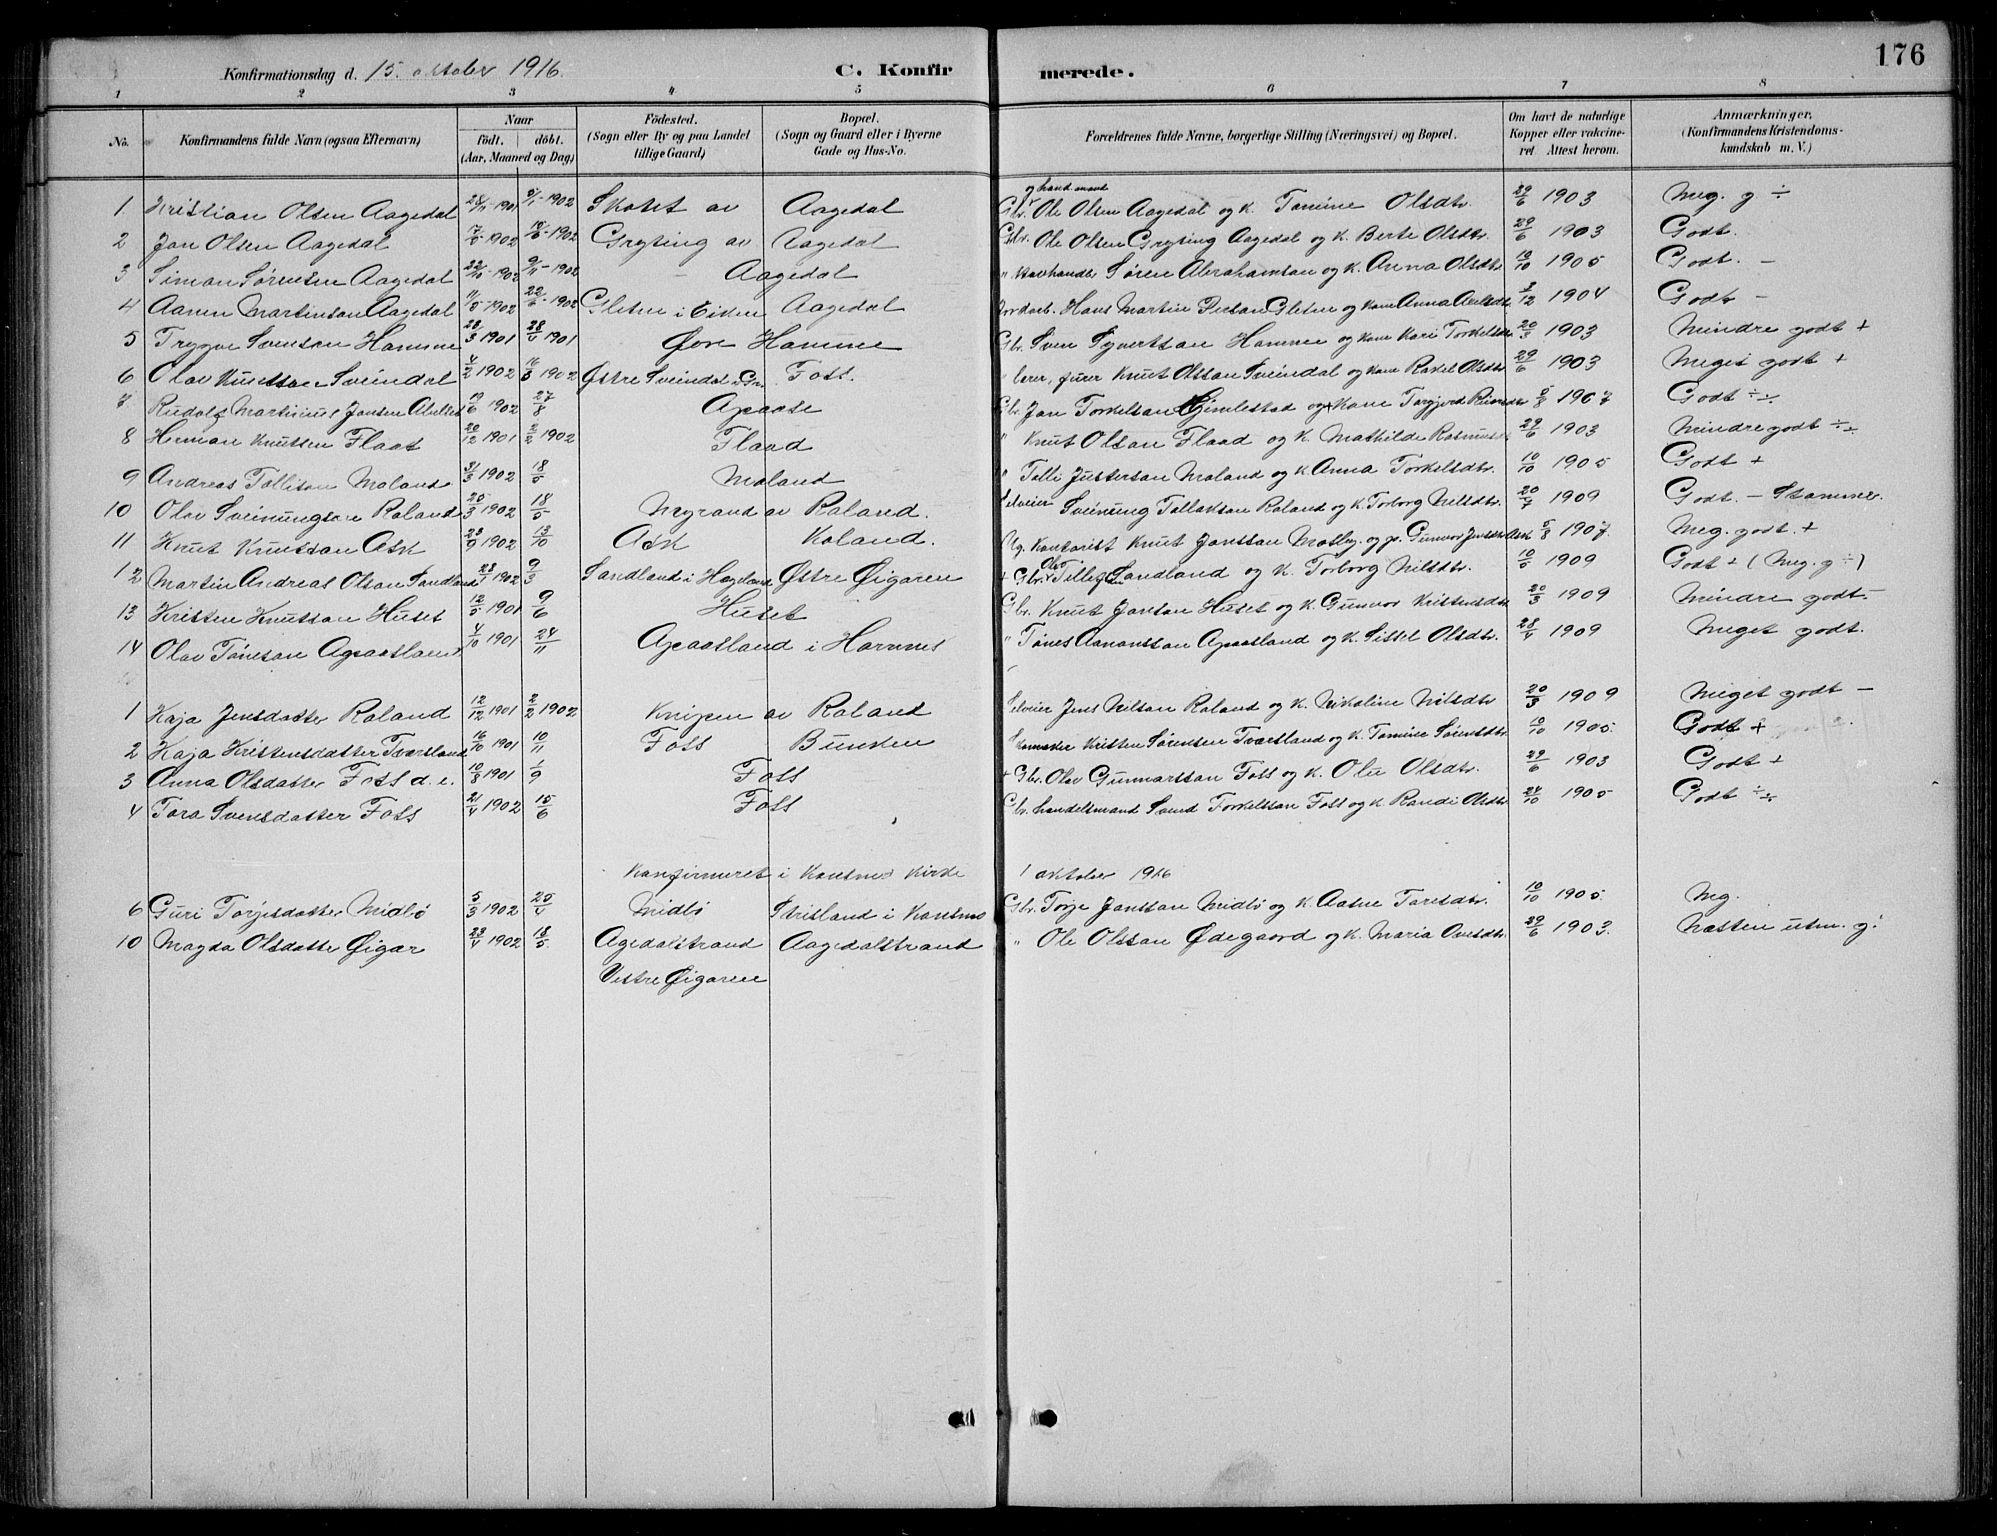 176
Konfirmationsdag d. 15. oktober 1916.
C. Konfirmerede.
1 2 3 4 5 6 7 8
No. Konfirmandens fulde Navn (ogsaa Efternavn) Naar födt. döbt. (Aar, Maaned og Dag) Födested. (Sogn eller By og paa Landet tillige Gaard) Bopæl. (Sogn og Gaard eller i Byerne Gade og Hus-No. Forældrenes fulde Navne, borgerlige Stilling (Næringsvei) og Bopæl. Om havt de naturlige Kopper eller vakcineret Attest herom. Anmærkninger. (Konfirmandens Kristendomskundskab m. V.)
1 Kristian Olsen Aagedal 28/11-1901 5/1-1902 Skotet av Aagedal Gbr. og hand.mand Ole Olsen Aagedal og k. Tomine Olsdtr. 29/6 1903 Meg. g ÷
2 Jon Olsen Aagedal 17/5-1902 15/6-1902 Gryting av Aagedal Gbr. Ole Olsen Gryting Aagedal og k. Berte Olsdtr. 29/6 1903 Godt.
3 Simon Sørensen Aagedal 22/10-1902 9/11-1902 – Aagedal " Søren Abrahamsen og k. Anna Olsdtr 10/10 1905 Godt. –
4 Aanen Martinson Aagedal 11/5-1902 22/6-1902 Gletne i Eiken Aagedal Jordarb. Hans Martin Gletne og kone Anna 2/12 1904 Godt –
5 Trygve Svenson Homme 23/3 1901 28/4 1901 Øvre Homme Gbr. Sven Syvertson Homme og kone Kari Torkelsdtr 20/3 1903 Mindre godt +
6 Olav Knutson Sveindal 4/2 1902 16/3 1902 Østre Sveindal Foss. " lærer, Knut Olson Sveindal og kone Rakel Olsdtr 29/6 1903 Meget godt +
7 Rudolf Martinius Jonsen 19/6 1902 27/8 Gbr. Jon Torkelson Gjemlestad og kone 5/8 1907 Godt ÷÷
8 Herman Knutsen Flaat 20/12 1901 2/2 1902 Flaad " Knut Olson Flaad og k. Mathilde 29/6 1903 Mindre godt ÷÷
9 Andreas Tollison Moland 31/3 1902 18/5 Moland " Tolli Justerson Moland og k. Anna Torkelsdtr. 10/10 1905 Godt +
10 Olav Sveinungson Roland 25/3 1902 18/5 Myrand av Roland. Selveier Sveinung Tellakson Roland og k. Torborg Nilsdtr. 20/7 1909 Godt. – Stammer.
11 Knut Knutson Ask 28/9 1902 13/10 Ask Roland. Ug. Kontorist Knut Jonsson Mosby og p. Gunvor Jensdtr Ask 5/8 1907 Meg. godt. +
12 Martin Andreas Olson Sandland 28/1 1902 9/3 Sandland i Hægeland Østre Øigaren + Gbr. Olav Tellefsen Sandland og k. Torborg Nilsdtr. 10/5 1909 Godt + (Meg. g ÷)
13 Kristen Knutson Huset 12/5 1901 9/6 Huset Gbr. Knut Jonson Huset og k. Gunvor Kristensdtr 20/3 1909 Mindre godt –
14 Olav Tøneson 4/10 1901 24/11 i Hornnes " Tønes Aanonsson og k. Sissel Olsdtr. 28/4 1909 Meget godt.
1 Kaja Jensdatter Roland 12/12 1901 2/2 1902 Knipen av Roland Selveier Jens Nilson Roland og k. Nikoline Nilsdtr 20/3 1909 Meget godt –
2 Kaja Kristensdatter Tvartsland 16/10 1901 10/11 Foss Bunken Skomaker Kristen Sørensen Tvartsland og k. Tomine Sørensdtr 10/10 1905 Godt +
3 Anna Olsdatter Foss d. e. 10/8 1901 1/9 Foss + Gbr. Olav Gunnarsson Foss og k. Olu Olsdtr. 29/6 1903 Godt +
4 Tora Svensdatter Foss 21/4 1902 15/6 Foss Gbr. handelsmand Svend Torkelsen Foss og k. Randi Olsdtr 24/10 1905 Godt ÷÷
Konfirmeret i Konsmo Kirke 1 oktober 1916
6 Guri Torjesdatter Midbø 5/3 1902 25/4 Midbø Strisland i Konsmo Gbr. Torje Jonsson Midbø og k. Aasne Toresdtr. 10/10 1905. Mg.
10 Magda Olsdatter Øigar 23/4 1902 18/5 Agedalstrand Aagedalstrand " Ole Olsson Ødegaard og k. Maria Ovesdtr. 29/6 1903. Næsten utm. g!
Vestre Øigaren